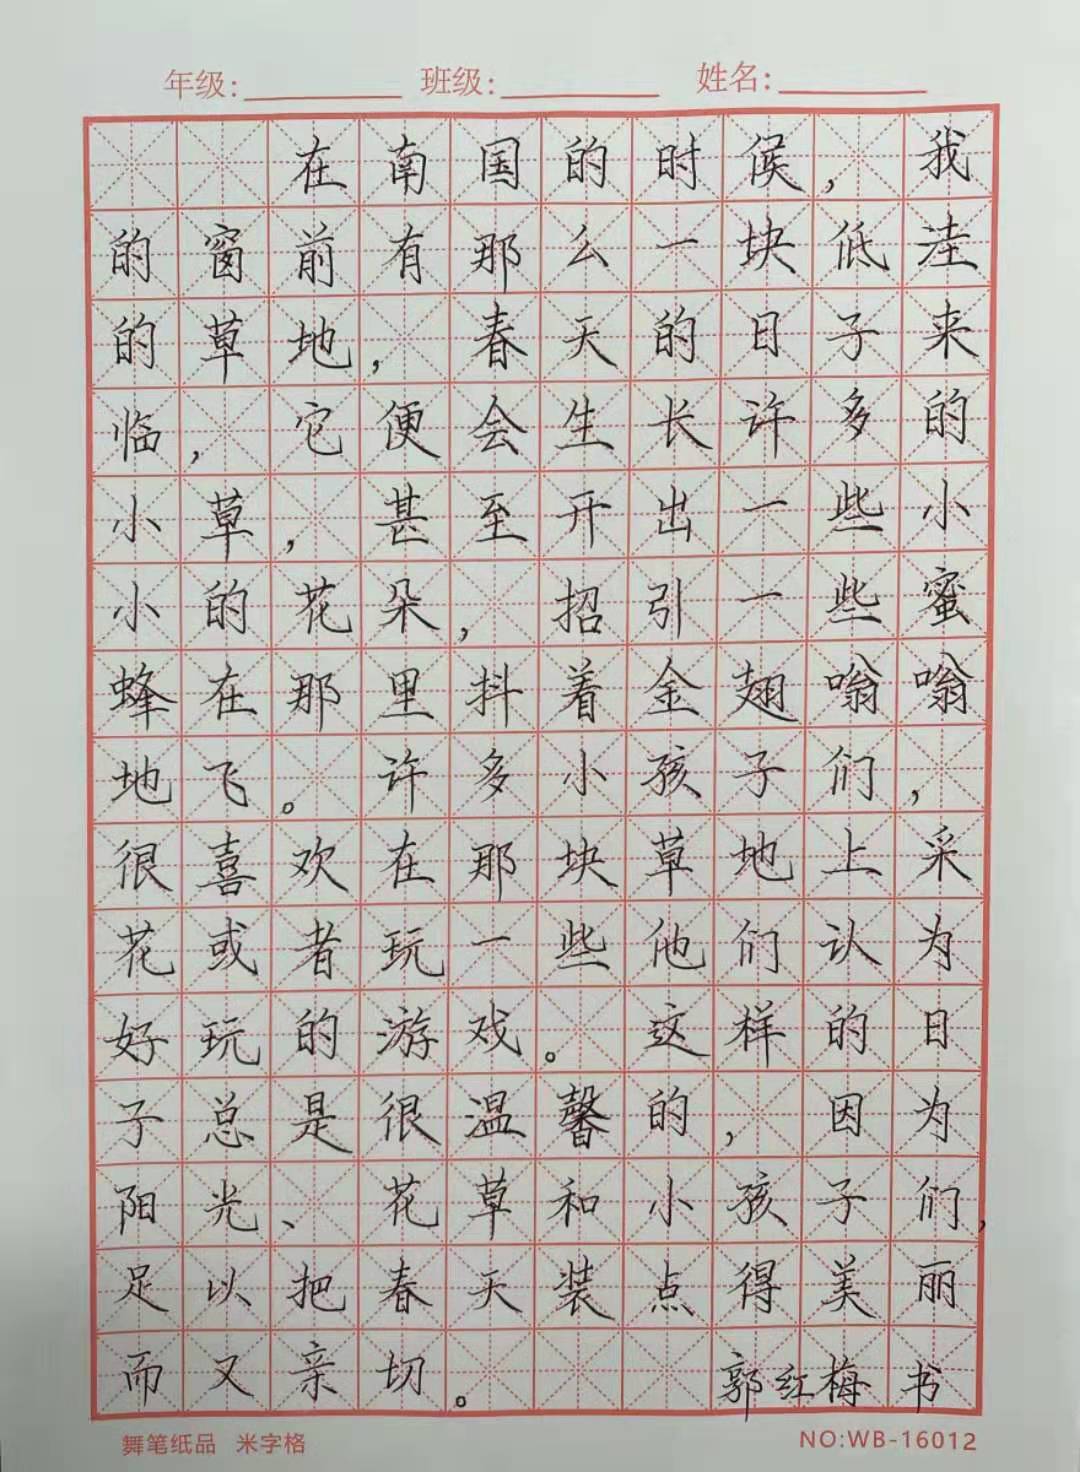 年级：　班级：　姓名：
在南国的时候，我
的窗前有那么一块低洼
的草地，春天的日子来
临，它便会生长许多的
小草，甚至开出一些小
小的花朵，招引一些蜜
蜂在那里抖着金翅嗡嗡
地飞。许多小孩子们，
很喜欢在那块草地上采
花或者玩一些他们认为
好玩的游戏。这样的日
子总是很温馨的，因为
阳光、花草和小孩子们，
足以把春天装点得美丽
而又亲切。郭红梅书
舞笔纸品 米字格 NO:WB-16012